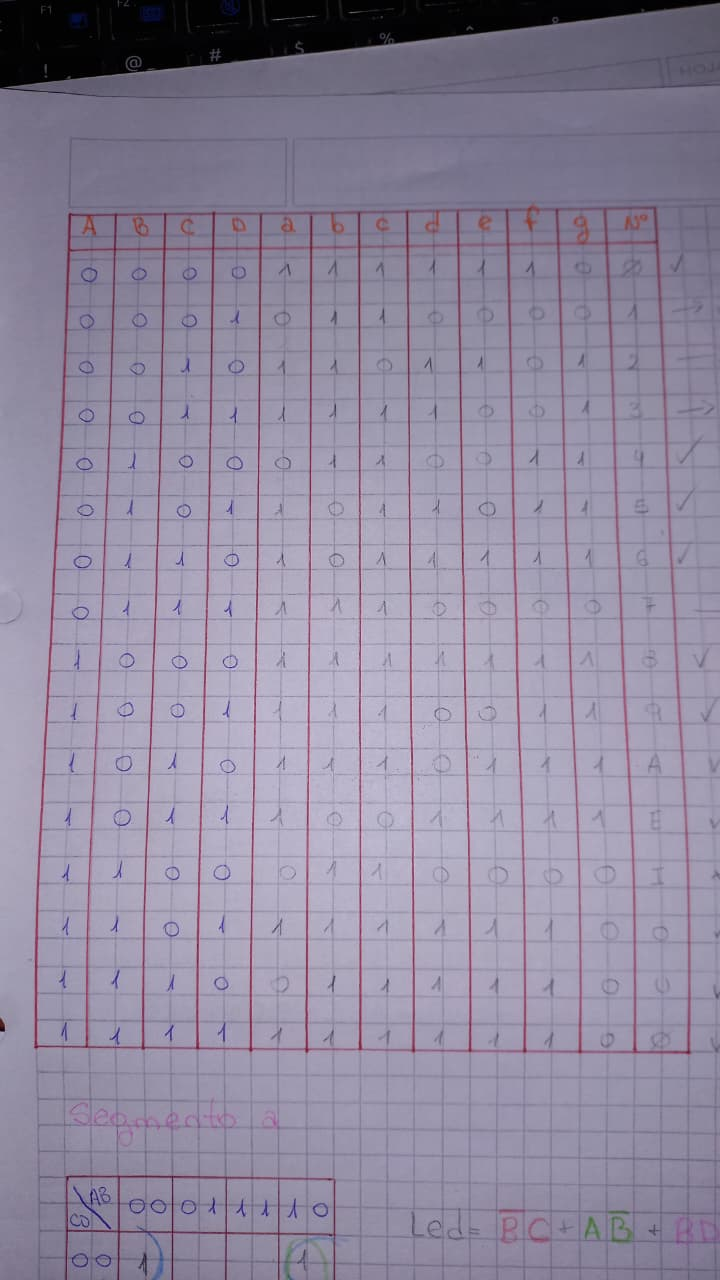 F1 F2
! @ # $ %
HOJA
A B C D a b c d e f g Nº
0 0 0 0 1 1 1 1 1 1 0 Ø ✓
0 0 0 1 0 1 1 0 0 0 0 1 →
0 0 1 0 1 1 0 1 1 0 1 2 —
0 0 1 1 1 1 1 1 0 0 1 3 →
0 1 0 0 0 1 1 0 0 1 1 4 ✓
0 1 0 1 1 0 1 1 0 1 1 5 ✓
0 1 1 0 1 0 1 1 1 1 1 6 ✓
0 1 1 1 1 1 1 0 0 0 0 7 —
1 0 0 0 1 1 1 1 1 1 1 8 ✓
1 0 0 1 1 1 1 0 0 1 1 9 ✓
1 0 1 0 1 1 1 0 1 1 1 A ✓
1 0 1 1 1 0 0 1 1 1 1 E ✓
1 1 0 0 0 1 1 0 0 0 0 I
1 1 0 1 1 1 1 1 1 1 0 O
1 1 1 0 0 1 1 1 1 1 0 U
1 1 1 1 1 1 1 1 1 1 0 Ø
Segmento a
CD/AB 00 01 11 10
Led= B̅C + AB̅ + BD
00 1 1